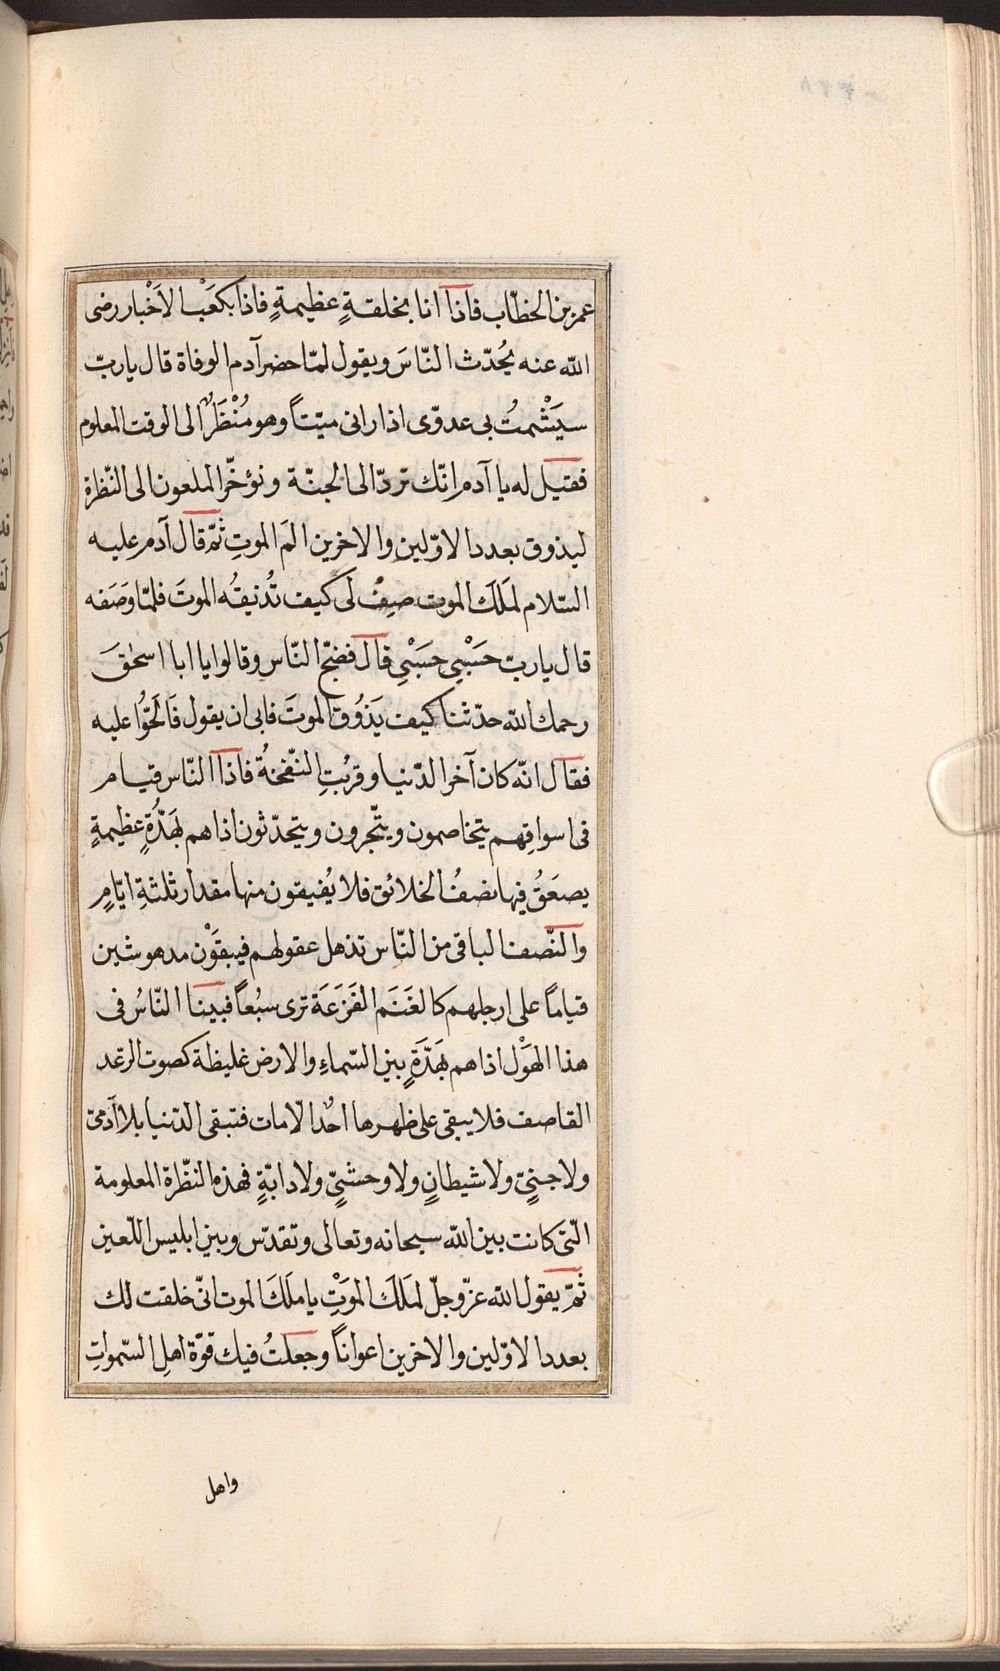 عمر بن الخطّاب فاذا انا بخلقةٍ عظيمةٍ فاذا بكعْب الاَخْبار رضى
اللّه عنه يُحدّث النّاسَ ويقول لمّا حضر آدم الوفاة قال ياربّ
سيَشْمتُ بى عدوّى اذا رانى ميّتاً وهو مُنْظَرٌ الى الوقت المعلوم
فقيل له يا آدم انّك تردّ الى الجنّة ونؤخّر الملعون الى النّظرة
ليذوق بعدد الاوّلين والاخرين المَ الموتِ ثمّ قال آدم عليه
السّلام لمَلَك الموت صِفْ لى كيف تُذيقُه الموتَ فلمّا وَصَفه
قال ياربّ حَسْبِى حسَبْىِ قال فضجّ النّاس وقالوا يا ابا اسحٰقَ
رحمك اللّه حدّثنا كيف يَذوُق الموتَ فابى ان يقول فَاَلَحّوُا عليه
فقال انّه كان آخر الدّنيا وقربُتِ النّفخةُ فاذا النّاس قيام
فى اسواقِهم يتخاصمون ويتّجرون ويتحدّثون اذا هم بهَدّةٍ عظيمةٍ
يصعَقُ فيها نصفُ الخلائق فلا يُفيقون منها مقدار ثلثةِ ايّامٍ
والنّصف الباقى من النّاس تذهل عقولهم فيبقَوْن مدهوشين
قياماً على ارجلهم كالغَنَم الفَزَعَة ترى سبُعاً فبينا النّاسُ فى
هذا الهَوْل اذا هم بهَدّةٍ بين السّماءِ والارض غليظة كصوت الرّعد
القاصف فلا يبقى على ظهرها احدٌ الّا مات فتبقى الدّنيا بلا آدمىّ
ولا جنىٍّ ولا شيطانٍ ولا وحشىٍّ ولا دابّةٍ فهذه النظّرة المعلومة
الّتى كانت بين اللّه سبحانه وتعالى وتقدّس وبين ابليس اللّعين
ثمّ يقول اللّه عزّ وجلّ لمَلَك الموَْتِ يا ملَكَ الموت انّى خلقت لك
بعدد الاوّلين والاخرين اعواناً وجعلتُ فيك قوّة اهلِ السّمواتِ
واهل